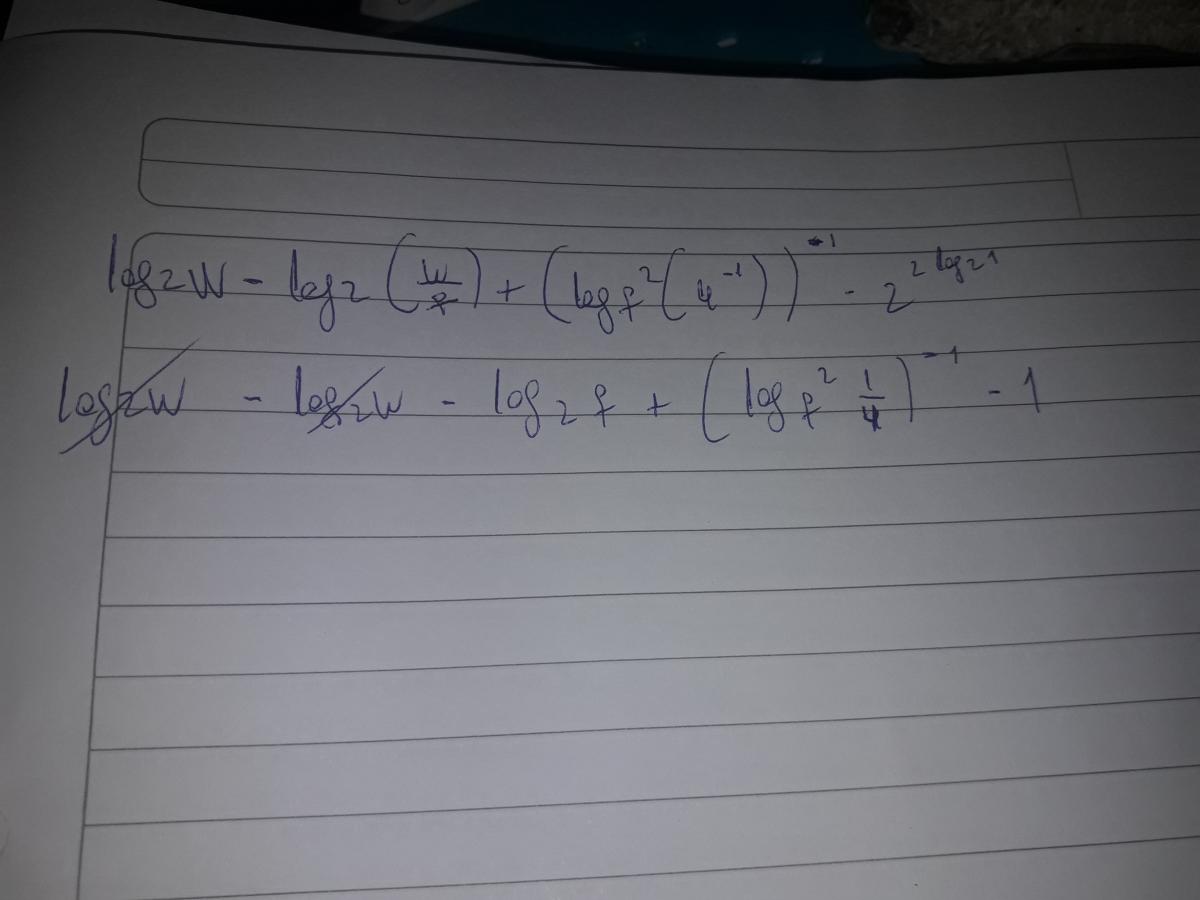 log₂W - log₂(W/f) + (log f²(4⁻¹))⁻¹ - 2^(2 log₂1)
log₂W - log₂W - log₂f + (log f² 1/4)⁻¹ - 1